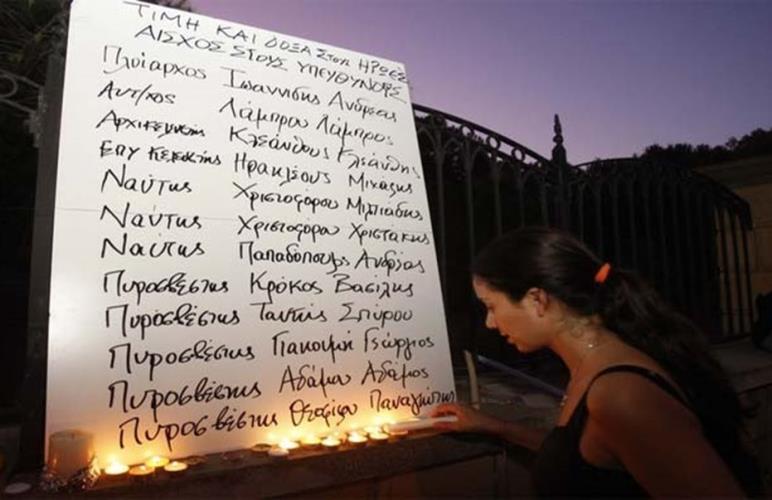 ΤΙΜΗ ΚΑΙ ΔΟΞΑ ΣΤΟΥΣ ΗΡΩΕΣ
ΑΙΣΧΟΣ ΣΤΟΥΣ ΥΠΕΥΘΥΝΟΥΣ
Πλοίαρχος Ιωαννίδης Ανδρέας
Αντ/χος Λάμπρου Λάμπρος
Αρχικελευστής Κλεάνθους Κλεάνθης
Επικελευστής Ηρακλέους Μιχάλης
Ναύτης Χριστοφόρου Μιλτιάδης
Ναύτης Χριστοφόρου Χριστάκης
Ναύτης Παπαδόπουλος Αντώνης
Πυροσβέστης Κρόκος Βασίλης
Πυροσβέστης Ταντής Σπύρου
Πυροσβέστης Γιακουμή Γεώργιος
Πυροσβέστης Αδάμου Αδάμος
Πυροσβέστης Θεοφίλου Παναγιώτης